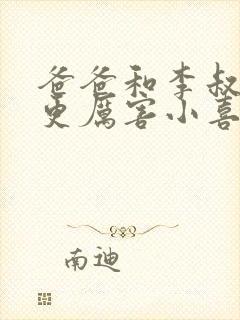 爸爸和李叔
更厲害小喜
南迪